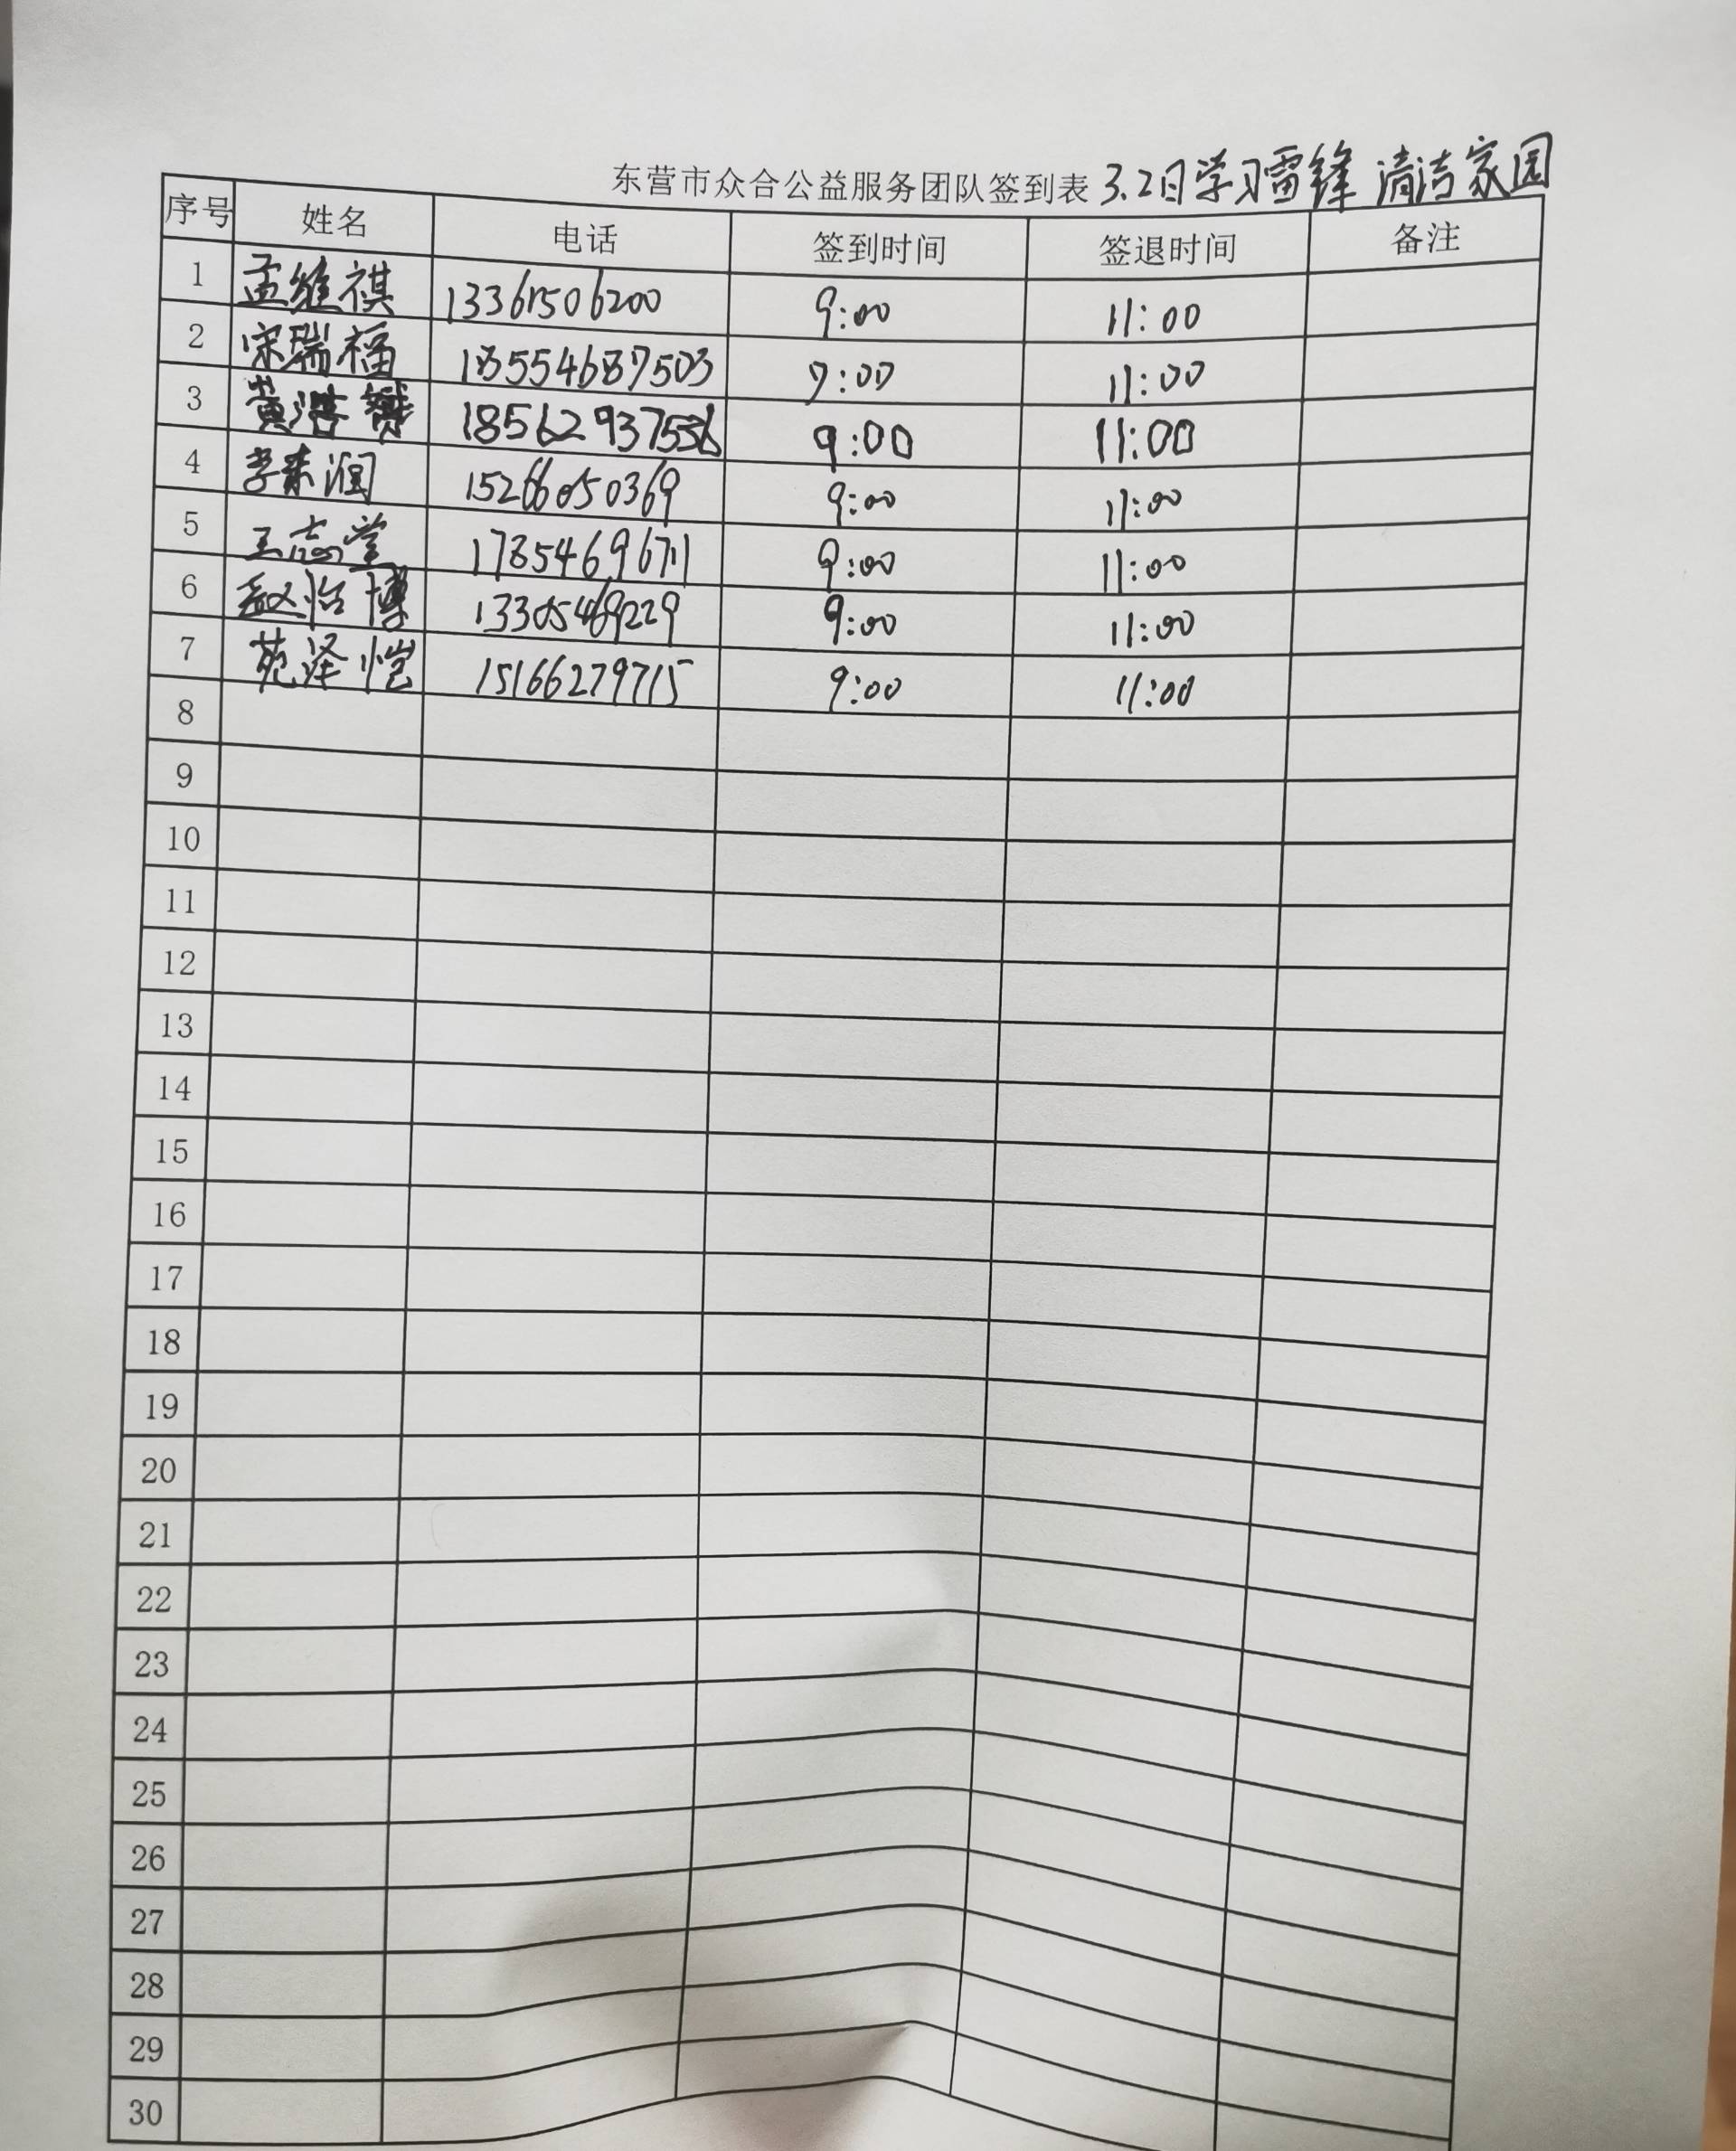 东营市众合公益服务团队签到表 3.2日学习雷锋 清洁家园
序号 姓名 电话 签到时间 签退时间 备注
1 孟维祺 13361506200 9:00 11:00
2 宋瑞福 18554687503 9:00 11:00
3 黄浩 9:00 11:00
4 李来润 15266050369 9:00 11:00
5 王志堂 17854696711 9:00 11:00
6 赵怡博 13305469229 9:00 11:00
7 苑泽恺 15166279715 9:00 11:00
8
9
10
11
12
13
14
15
16
17
18
19
20
21
22
23
24
25
26
27
28
29
30